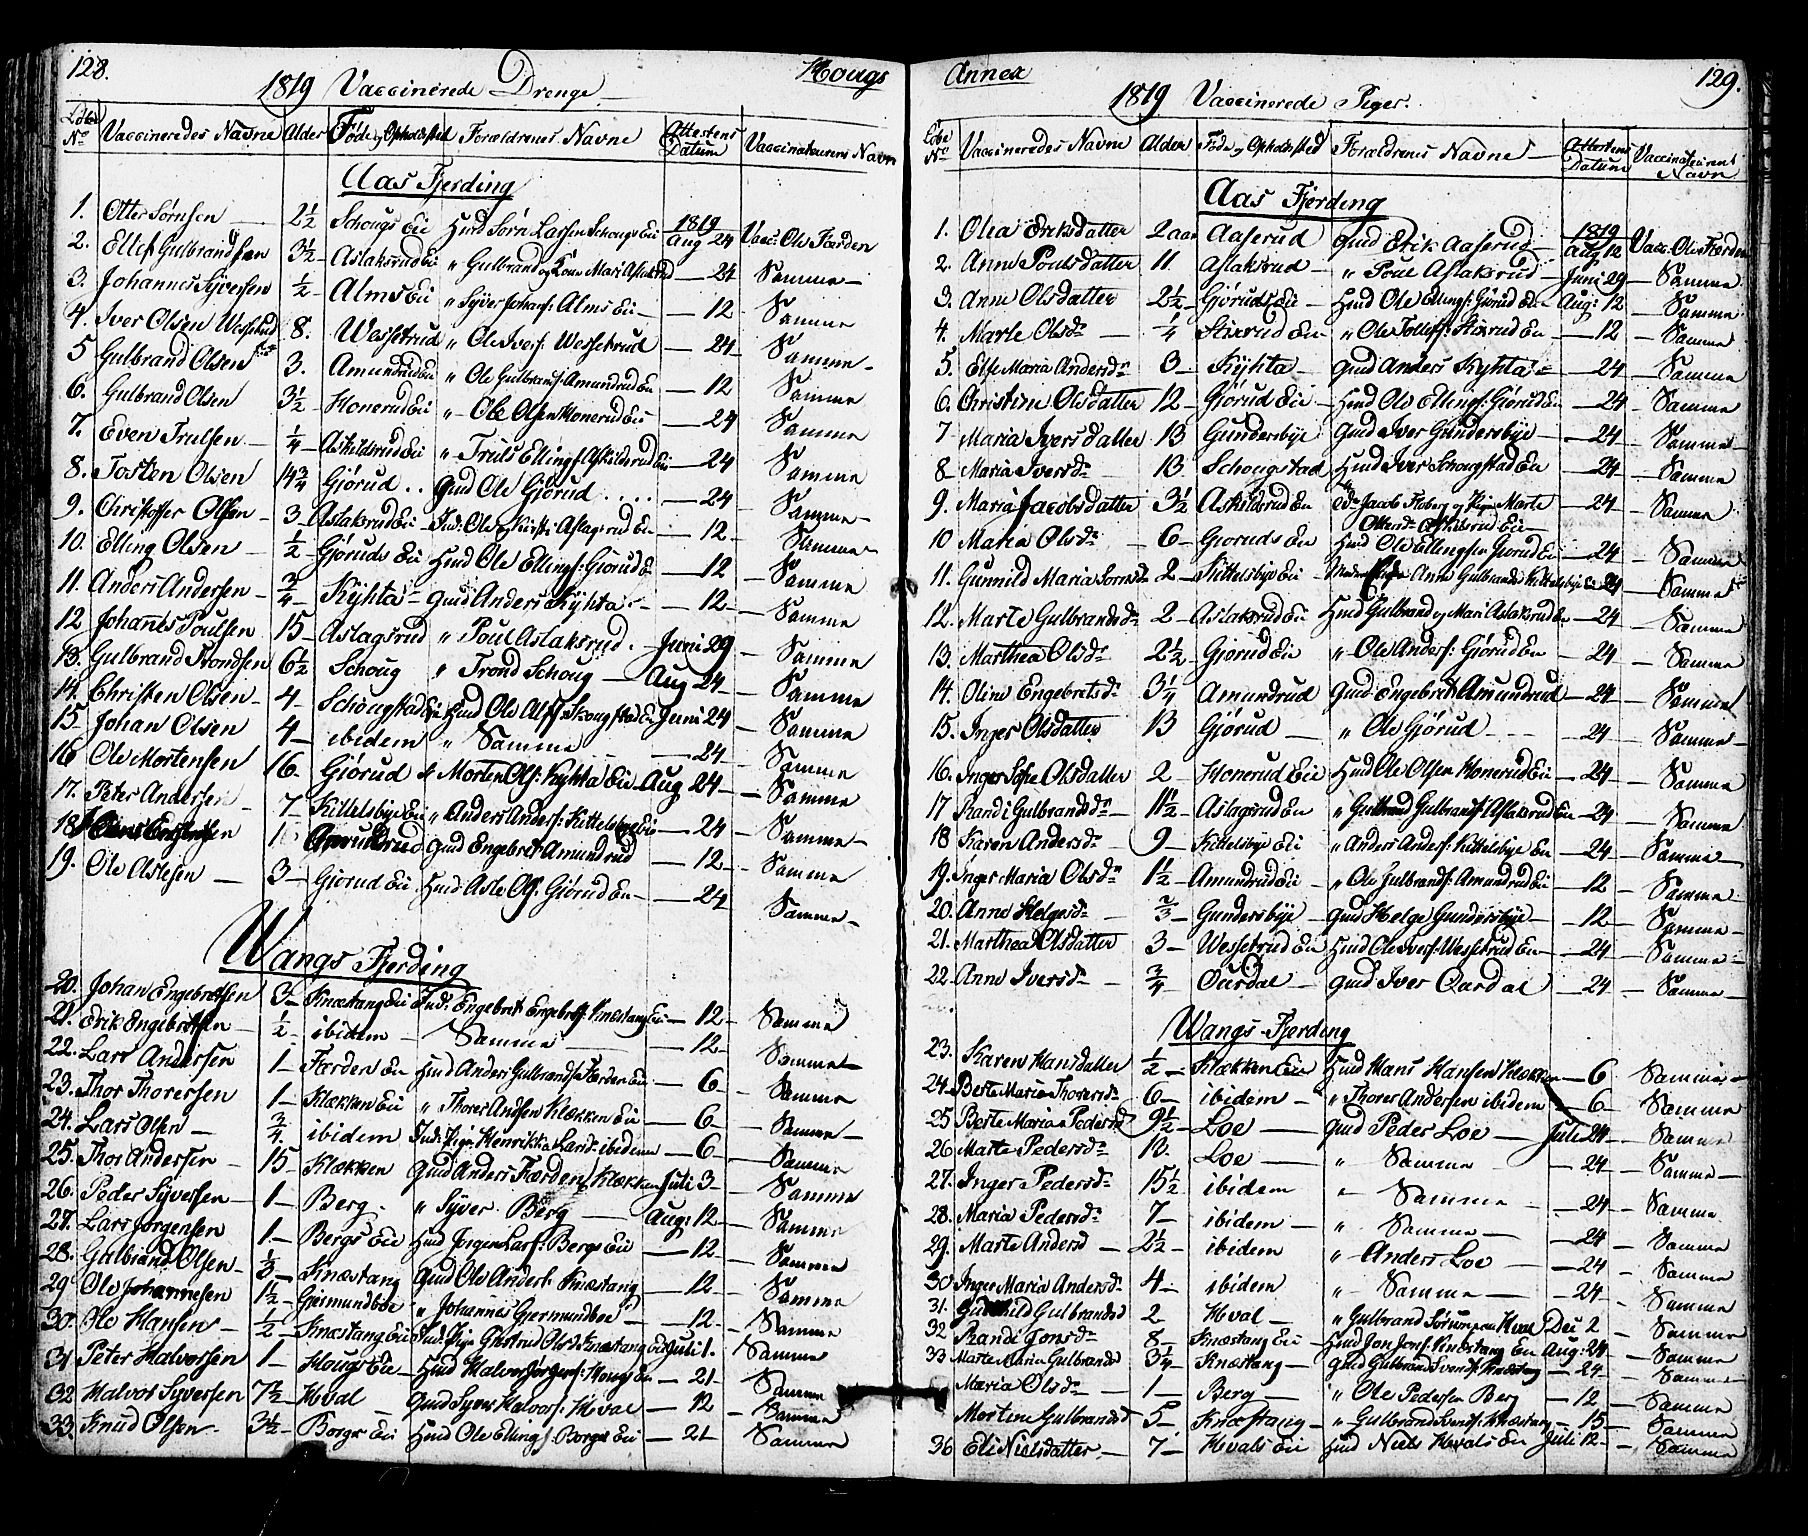 128.
1819 Vaccinerede Drenge Hougs
Løbe No Vaccineredes Navne Alder Føde og Opholdsted Forældrenes Navne Attestens Datum Vaccinateurens Navn
Aas Fjerding
1. Otter Sørnsen 2½ Schougs Eii Huusmd Sørn Larsen Schougs Eii 1819 Aug 24 Vacc: Ole Færden
2. Ellef Gulbrandsen 3½ Aslaksrud Eii " Gulbrand og Kone Mari Aslaksrud — 24 Samme
3. Johannes Syversen ½ Alms Eii " Syver Johans: Alms Eii — 12 Samme
4. Iver Olsen Wessetrud 8. Wessetrud " Ole Ivers: Wessetrud — 24 Samme
5 Gulbrand Olsen 3. Amundrud Eii " Ole Gulbrans: Amundrud Eii — 12 Samme
6. Gulbrand Olsen 3½ Honerud Eii " Ole Olsen Honerud Eii — 24 Samme
7. Even Trulsen ¼ Askildsrud Eii " Truls Ellings: Askildsrud Eii — 24 Samme
8. Tosten Olsen 14¾ Gjørud Gmd Ole Gjørud — 24 Samme
9. Christoffer Olsen 3 Aslaksrud Eii Ind: Ole og Kirsti Aslagsrud Ei — 12 Samme
10. Elling Olsen ½ Gjøruds Eii Hmd Ole Ellings: Giørud E — 12 Samme
11. Anders Andersen ¾ Kÿhta Gmd Anders Kÿhta — 12 Samme
12 Johannes Poulsen 15 Aslagsrud " Poul Aslaksrud. Juni 29 Samme
13. Gulbrand Trondsen 6½ Schoug " Trond Schoug Aug 24 Samme
14. Christen Olsen 4 Schougstad Eii Hmd Ole Skougstad Ei Juni 24 Samme
15. Johan Olsen 4 ibidem " Samme — 24 Samme
16 Ole Mortensen 16. Giørud Morten Ols: Kyhta Eii Aug 24 Samme
17. Peter Andersen 7 Kittelsbye Eii " Anders Anders: Kittelsbye Eii — 24 Samme
18. 1 Amundrud Gmd Engebret Amundrud — 12 Samme
19. Ole Aslesen 3 Giørud Eii Hmd Asle Ols: Giørud Ei — 24 Samme
Wangs Fjerding
20. Johan Engebretsen 3 Knæstang Eii Ind: Engebret Engebrets: Knæstang Eii — 12 Samme
21. Erik Engebretsen ½ ibidem Samme — 12 Samme
22. Lars Andersen 1 Færden Eii Hmd Anders Gulbrands: Færden Eii — 6 Samme
23. Thor Thoresen 1 Klækken Eii " Thores Andsen Klækken Eii — 6 Samme
24. Lars Olsen ¾ ibidem Ind: Pige Henrikke Larsd: ibidem — 6 Samme
25. Thor Andersen 15 Klækken Gmd Anders Færden Klækken Juli 3 Samme
26. Peder Syversen 1 Berg. " Syver Berg Aug: 12 Samme
27. Lars Jørgensen 1. Bergs Eii Hmd Jørgen Lars: Bergs Eii — 12 Samme
28. Gulbrand Olsen ½ Knæstang Gmd Ole Anders: Knæstang — 12 Samme
29 Ole Johannesen 1½ Gjermundboe " Johannes Gjermundboe — 12 Samme
30. Ole Hansen ½ Knæstang Eii Ind: Pige Giertrud Olsd: Knæstang Eii Juli 1. Samme
31 Peter Halvorsen 1 Hougs Eii Hmd Halvor Jørgens: Hougs Ei — 21 Samme
32 Halvor Syversen 7½ Hval Gmd Syver Halvors: Hval — 12 Samme
33. Knud Olsen 3½ Borger Eii Hmd Ole Ellings: Borger Eii — 21 Samme
Annex 129.
1819 Vaccinerede Piger.
Løbe No Vaccineredes Navne Alder Føde og Opholdsted Forældrenes Navne Attestens Datum Vaccinateurens Navn
Aas Fjerding
1. Olea Eriksdatter 2 aar Aaserud Gmd Erik Aaserud 1819 Aug 12 Vacc. Ole Færden
2. Anne Poulsdatter 11 Aslaksrud " Poul Aslaksrud Juni 29 Samme
3. Anne Olsdatter 2½ Gjøruds Eii Hmd Ole Ellings: Gjørud Ei Aug: 12 Samme
4. Marte Olsdr ¼ Stixrud Ei " Ole Tollefs: Stixrud Ei — 12 Samme
5. Else Maria Andersdr 3 Kÿhta Gmd Anders Kÿhta 24 Samme
6. Christine Olsdatter 12 Gjørud Eii Hmd Ole Ellings: Gjørud Ei — 24 Samme
7 Maria Iversdatter 13 Gundersbÿe Gmd Iver Gundersbÿe — 24 Samme
8 Maria Iversdr 13 Schougstad Hmd Iver Schougstad Ei 24 Samme
9. Maria Jacobsdatter 3½ Askildsrud Ei Jacob og Pigen Marte Ottersdr Askilsrud Eii 24 Samme
10 Maria Olsdr 6 Gioruds Ei Hmd Ole Ellingsen Giorud Ei — 24 Samme
11. Gunnild Maria Sørnsdr 2 Kittelsbÿe Eii Anne Gulbrandsd Kittelsbÿe Ei 24 Samme
12. Marte Gulbrandsdr 2 Aslaksrud Ei Hmd Gulbrand og Mari Aslaksrud Ei 24 Samme
13. Marthea Olsdr 2½ Gjørud Eii " Ole Anders: Gjørud Ei 24 Samme
14. Oline Engebretsdr 3¼ Amundrud Gmd Engebret Amundrud — 24 Samme
15. Inger Olsdatter 13 Gjørud " Ole Gjørud 24 Samme
16. Inger Sofie Olsdatter 2 Honerud Eii Hmd Ole Olsen Honerud Eii 24 Samme
17 Randi Gulbrandsdr 11½ Aslagsrud Ei " Gulbrand Gulbrands: Aslaksrud Ei — 24 Samme
18 Karen Andersdr 9 Kittelsbÿe Eii " Anders Anders: Kittelsbye Ei — 24 Samme
19. Inger Maria Olsdr 1½ Amundrud Eii " Ole Gulbrands: Amundrud Eii — 12 Samme
20. Anne Helgesdr ⅔ Gundersbÿe Gmd Helge Gundersbÿe — 12 Samme
21. Marthea Olsdatter 3 Wessetrud Eii Hmd Ole Ivers: Wessetrud Ei — 24 Samme
22. Anne Iversdr ¾ Oursdal Gmd Iver Oursdal — 24 Samme
Wangs-Fjerding
23. Karen Hansdatter ½ Klækken Eii Hmd Hans Hansen Klækken — 6 Samme
24. Berte Maria Thorersdr 6 ibidem " Thores Andersen ibidem — 6 Samme
25 Berte Maria Pedersd 9½ Loe Gmd Peder Loe Juli 24 Samme
26 Marte Pedersdr 13. Loe " Samme — 24 Samme
27. Inger Pedersdr 15½ ibidem " Samme — 24 Samme
28. Maria Pedersdr 7 ibidem " Samme — 24 Samme
29. Marte Andersd 2½ ibidem " Anders Loe — 24 Samme
30 Inger Maria Andersdr 4. ibidem " Samme — 24 Samme
31. Gunnild Gulbrandsd 2 Hval " Gulbrand Hval Dec 2 Samme
32 Randi Jonsdr 8 Knæstang Ei Hmd Jon Jons: Knæstang Ei Aug: 24 Samme
33 Marte Maria Gulbrandsd 3¼ Knæstang Gmd Gulbrand Svends: Knæstang — 24 Samme
Maria Olsdr 1 Berg " Ole Pedersen Berg — 12 Samme
Mortine Gulbrandsd 5 Knæstang " Gulbrand Svends: Knæstang — 15 Samme
36 Eli Nielsdatter 7 Hvals Eii Hmd Niels Hvals Ei Juli 12 Samme